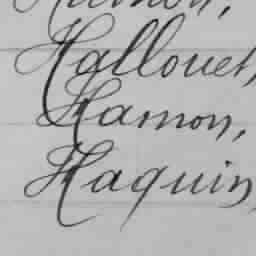 Hallouet,
Hamon,
Haquin,